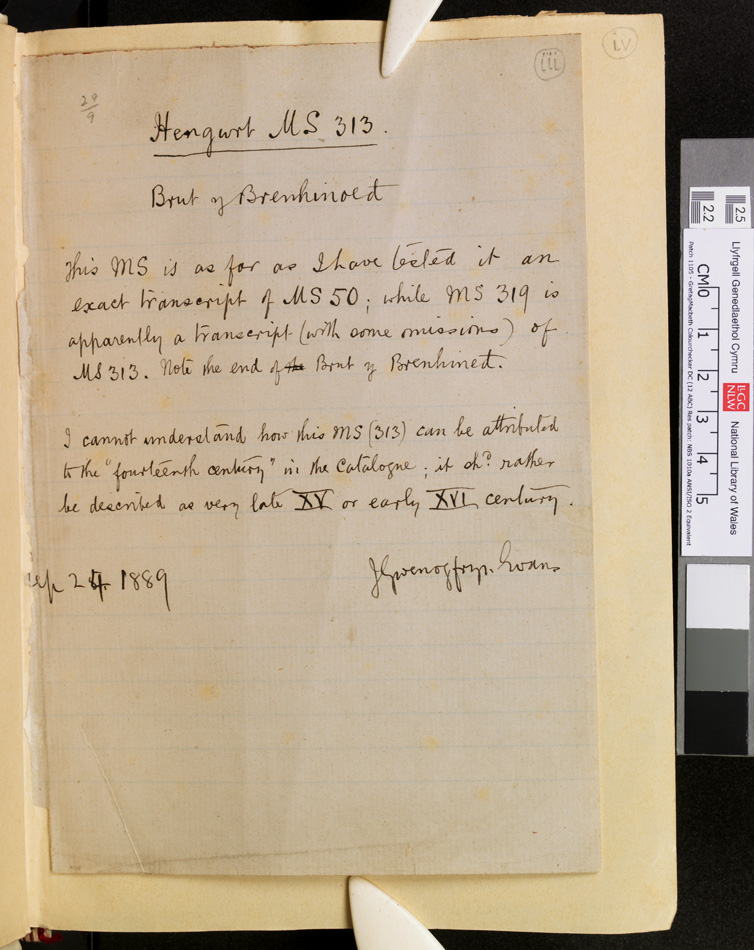 iv
iii
29
9
Hengwrt MS 313.
Brut y Brenhinoed
This MS is as far as I have tested it an
exact transcript of MS 50; while MS 319 is
apparently a transcript (with some omissions) of
MS 313. Note the end of the Brut y Brenhined.
I cannot understand how this MS (313) can be attributed
to the "fourteenth century" in the Catalogue; it shd. rather
be described as very late XV or early XVI century.
Sep 24 1889
J Gwenogfryn Evans
Llyfrgell Genedlaethol Cymru
LLGC
NLW
National Library of Wales
CM 0 1 2 3 4 5
2.2
2.5